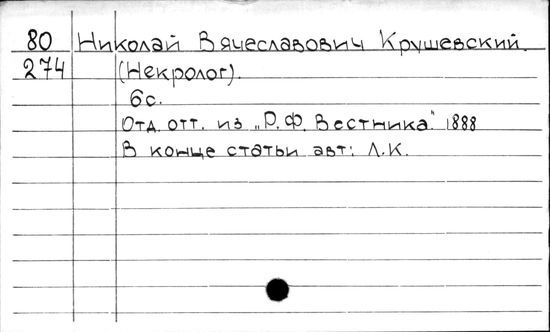 80 Николай Вячеславович Крушевский.
274 (Некролог).
6с.
Отд. отт. из „Р.Ф. Вестника." 1888
В конце статьи авт: Л.К.